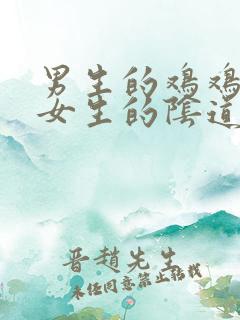 男生的鸡鸡
女生的陰道
晋趙先生
未经同意禁止转载